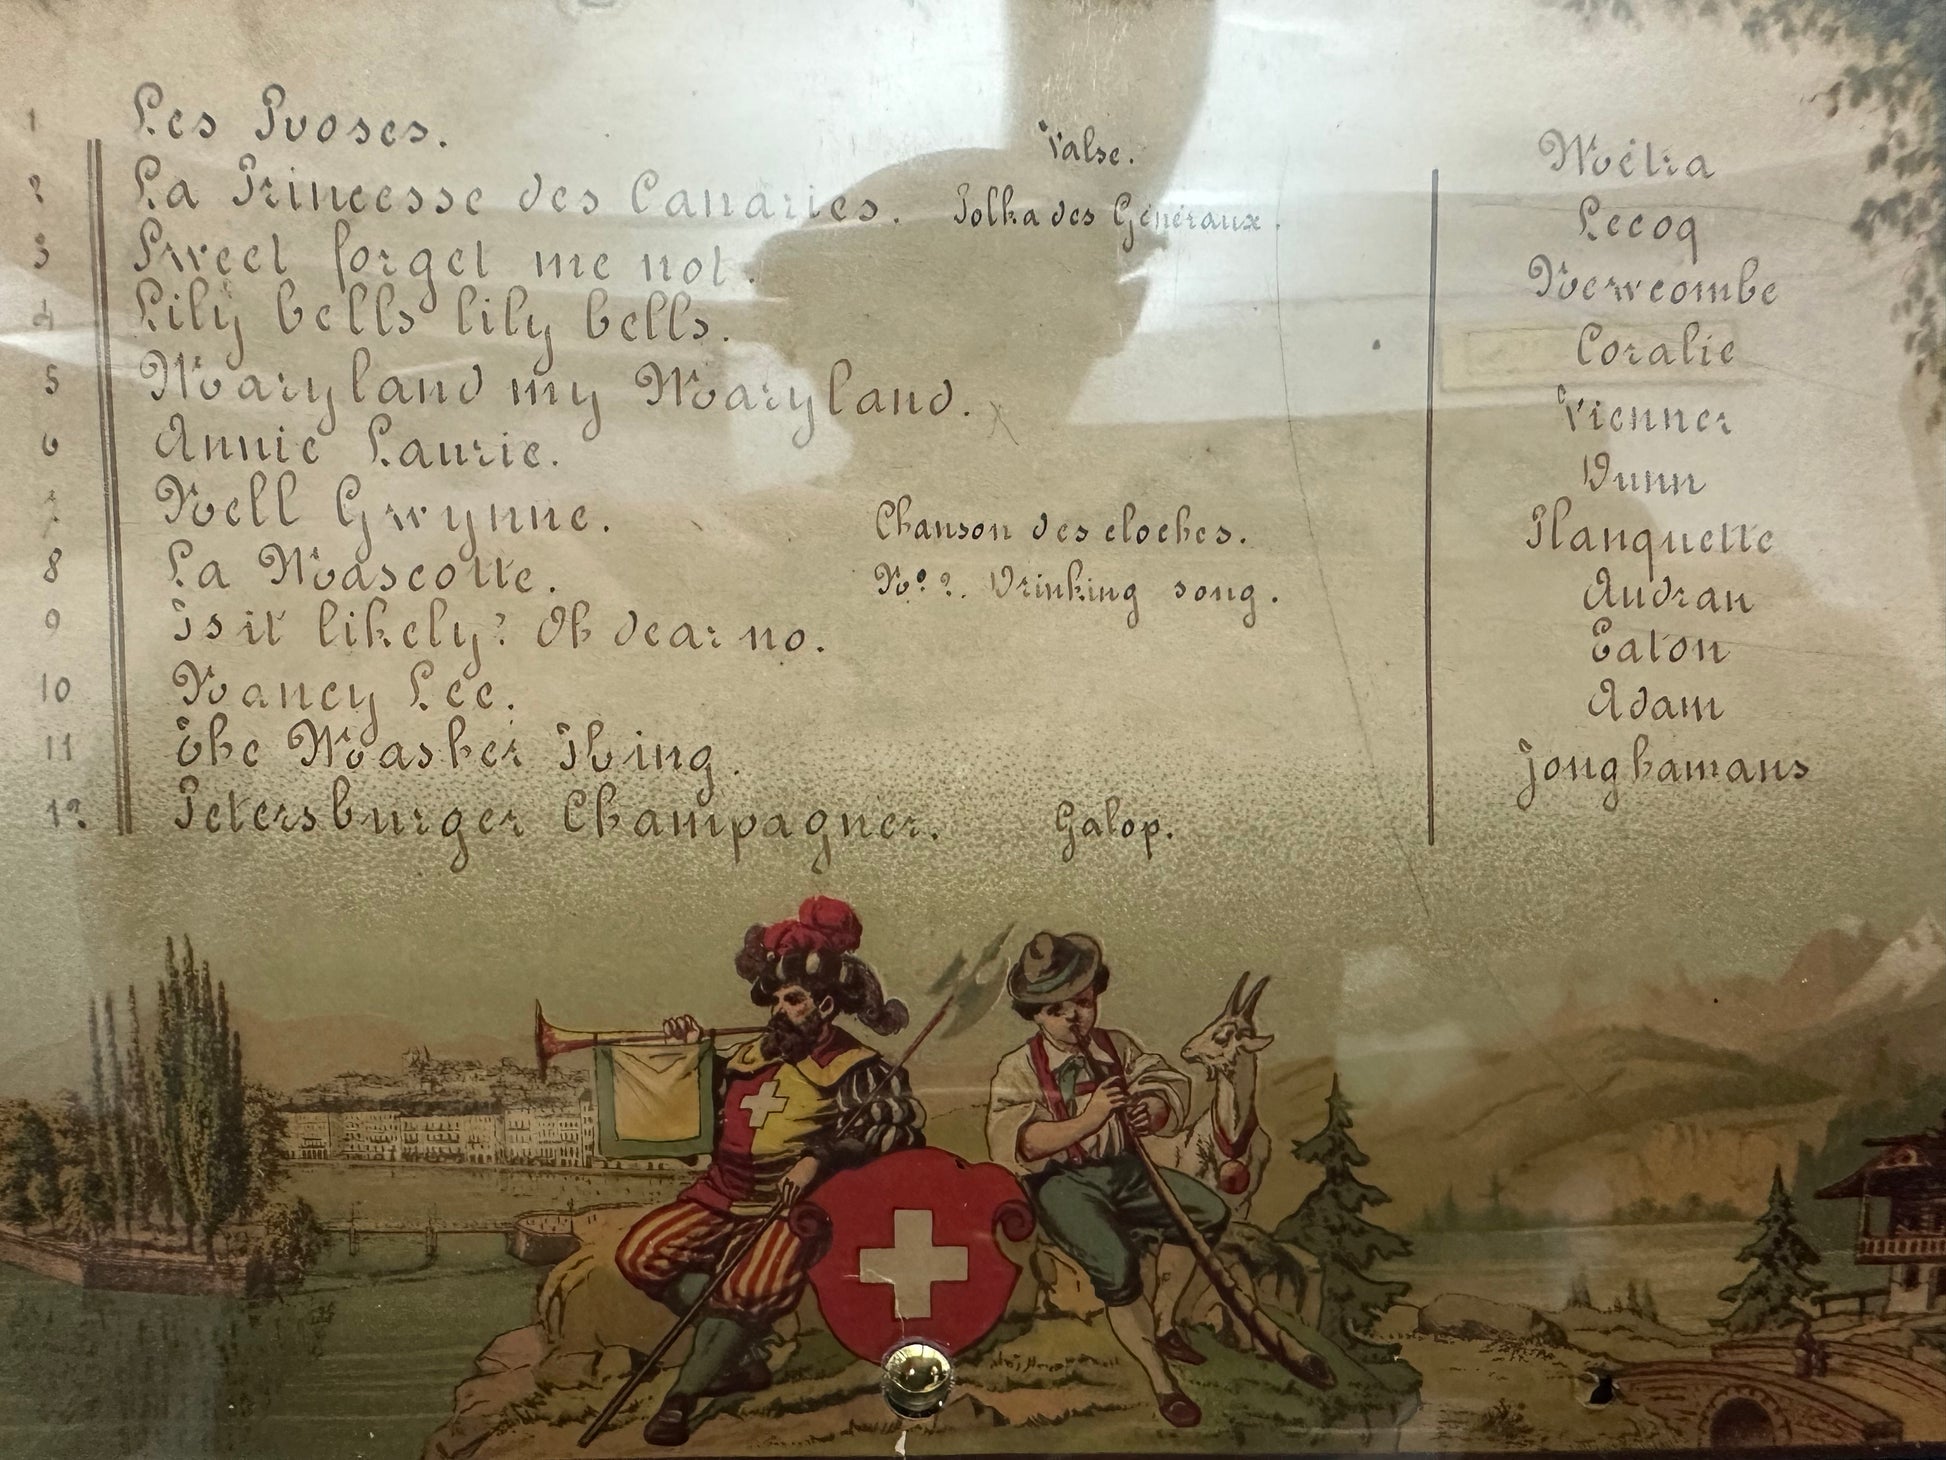 1 Les Roses. Valse. Métra
2 La Princesse des Canaries. Polka des Généraux. Lecoq
3 Sweet forget me not. Newcombe
4 Lily bells lily bells. Coralie
5 Maryland my Maryland. Vienner
6 Annie Laurie. Dunn
7 Nell Gwynne. Chanson des cloches. Planquette
8 La Mascotte. No. 2. Drinking song. Audran
9 Is it likely? Oh dear no. Eaton
10 Nancy Lee. Adam
11 The Masher King. Jonghamans
12. Petersburger Champagner. Galop.